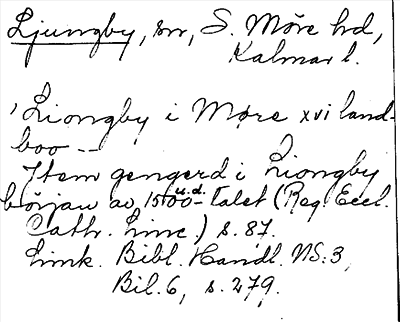 Ljungby, sn, S. Möre hd,
Kalmar l.
'Liongby i Møre xvi land-
boo --
Item gengerd i Liongby
u.d.
början av 1500-talet (Reg. Eccl.
Cath. Linc.) s. 87.
Link. Bibl. Handl. NS:3,
Bil. 6, s. 279.